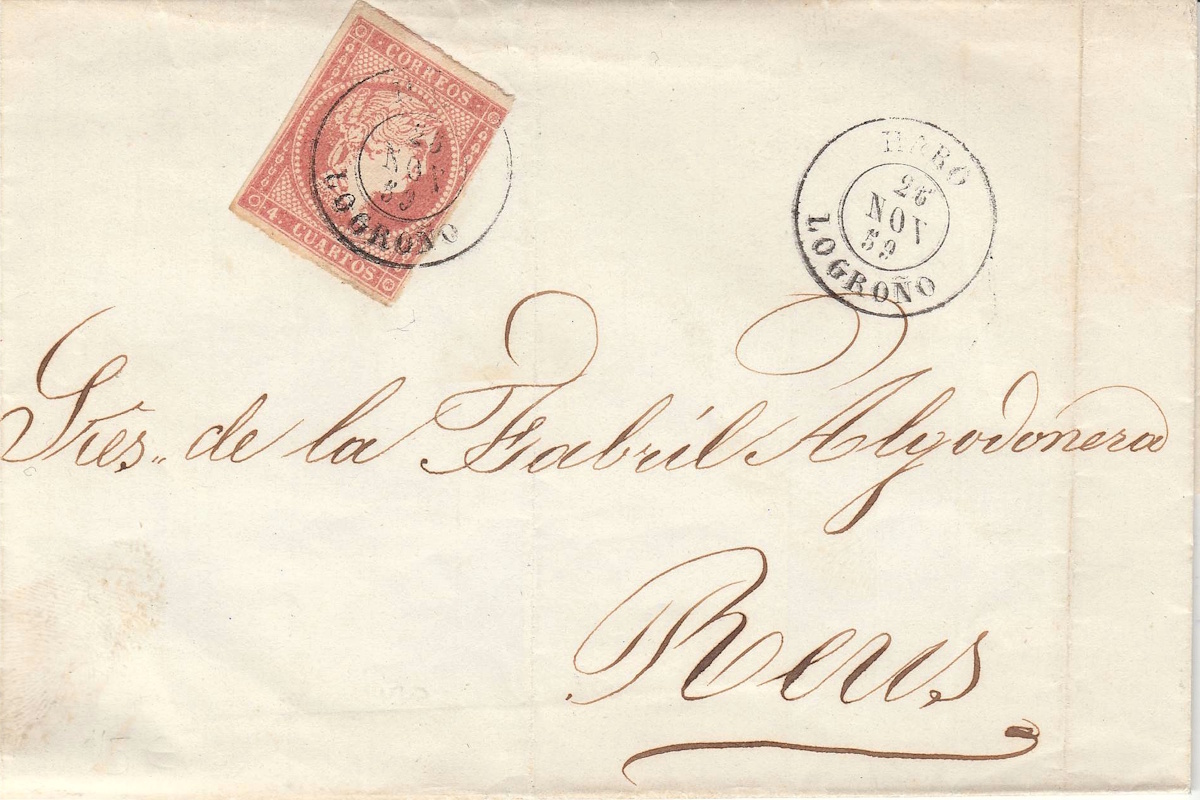 CORREOS
4. CUARTOS
26
NOV
59
LOGROÑO
HARO
26
NOV
59
LOGROÑO
Sres.. de la Fabríl Algodonera
Reus